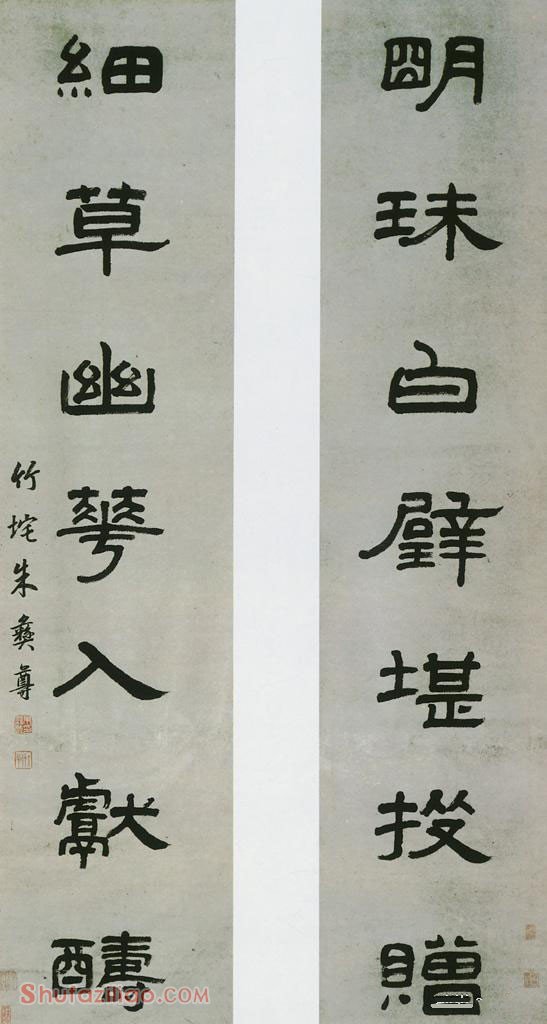 朙珠白璧堪投贈
細草幽華入獻醻
竹垞朱彝尊
Shufazhigo.com